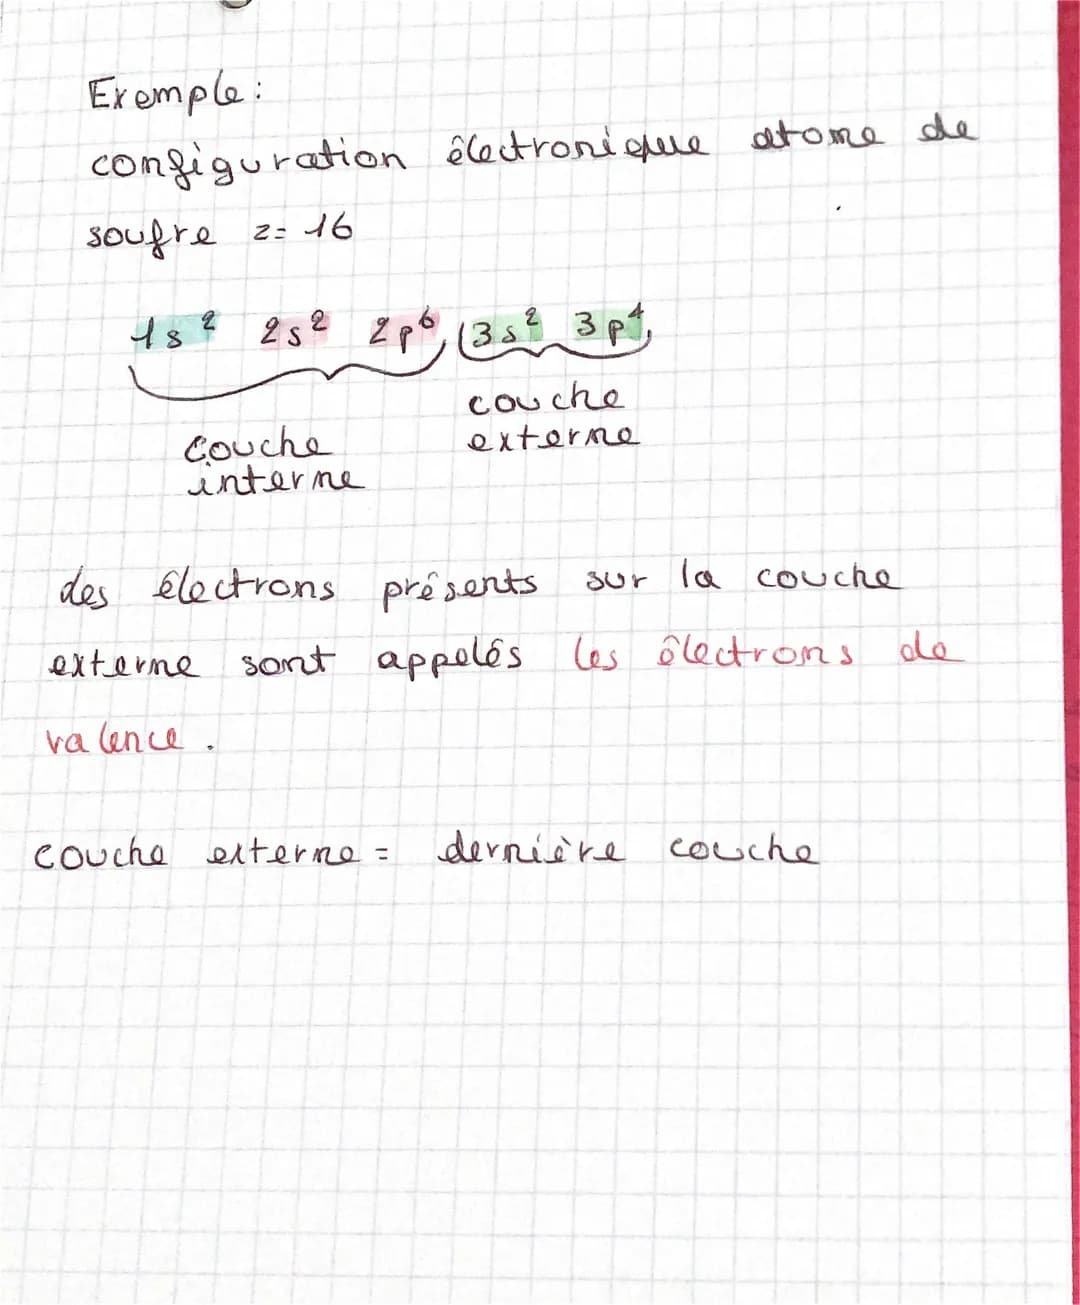 Exemple:
configuration électronique atome de
soufre z= 16
1s² 2s² 2p⁶ (3s² 3p⁴
couche
externe
couche
interne
des électrons présents sur la couche
externe sont appelés les électrons de
valence.
couche externe = dernière couche